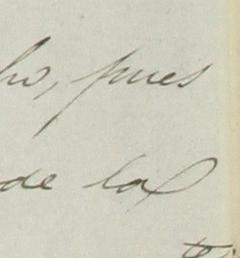 ho, pues
de la